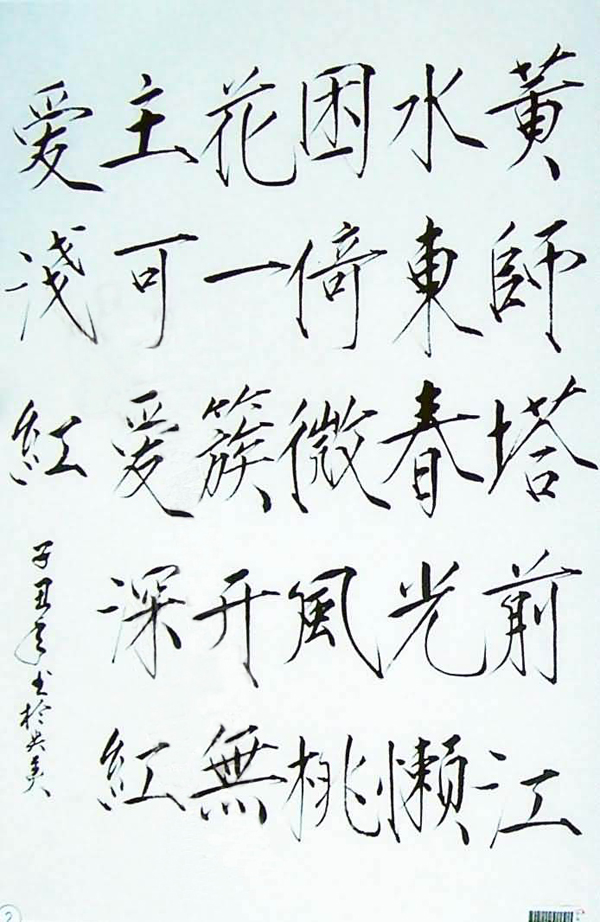 黄師塔前江
水東春光懶
困倚微風桃
花一簇开無
主可愛深紅
愛淺紅
子丑年书於